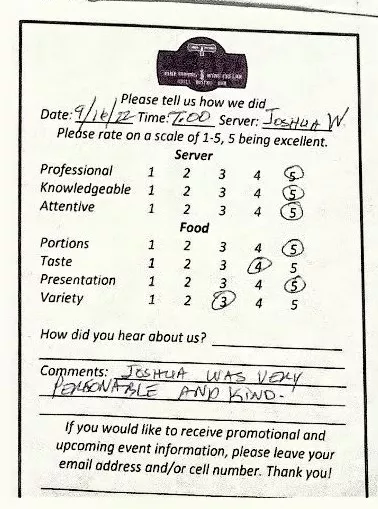 Please tell us how we did
Date: 9/16/22 Time: 7:00 Server: JOSHUA W.
Please rate on a scale of 1-5, 5 being excellent.
Server
Professional 1 2 3 4 5
Knowledgeable 1 2 3 4 5
Attentive 1 2 3 4 5
Food
Portions 1 2 3 4 5
Taste 1 2 3 4 5
Presentation 1 2 3 4 5
Variety 1 2 3 4 5
How did you hear about us?
Comments: JOSHUA WAS VERY
PERSONABLE AND KIND.
If you would like to receive promotional and
upcoming event information, please leave your
email address and/or cell number. Thank you!